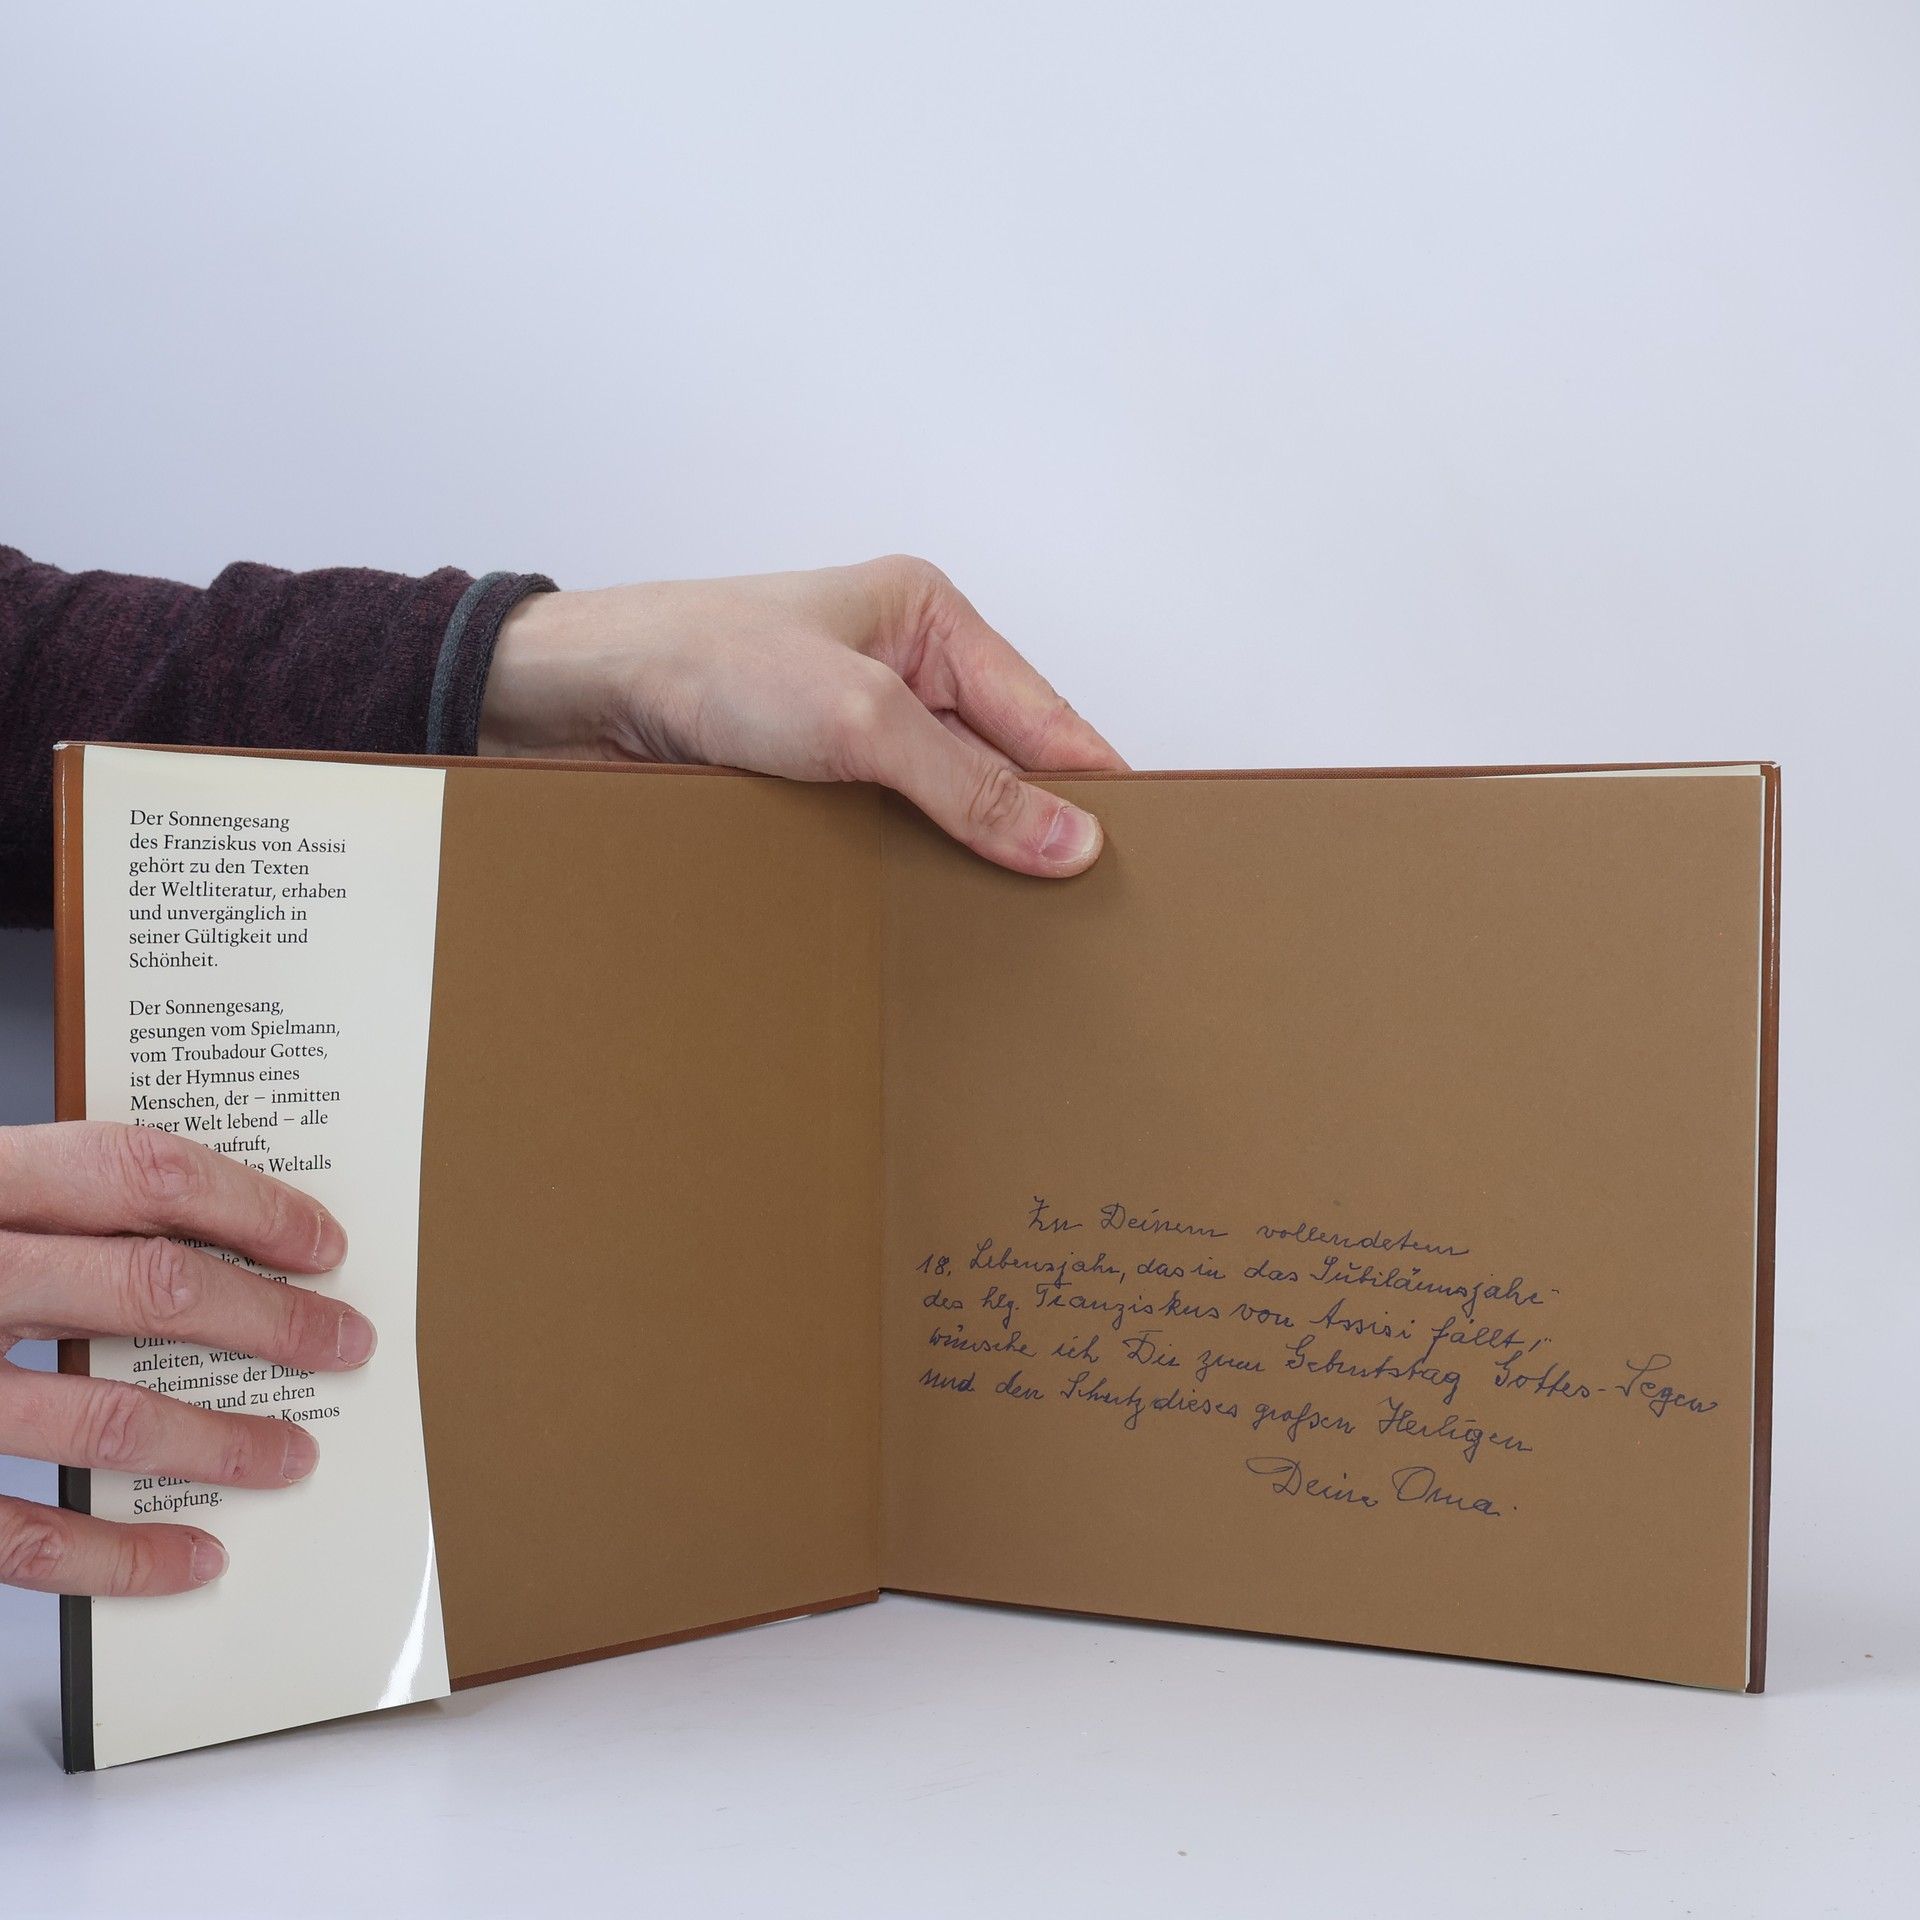 Der Sonnengesang
des Franziskus von Assisi
gehört zu den Texten
der Weltliteratur, erhaben
und unvergänglich in
seiner Gültigkeit und
Schönheit.
Der Sonnengesang,
gesungen vom Spielmann,
vom Troubadour Gottes,
ist der Hymnus eines
Menschen, der – inmitten
dieser Welt lebend – alle
aufruft,
des Weltalls
die
anleiten,
Geheimnisse der Dinge
und zu ehren
Kosmos
zu
Schöpfung.
Zu Deinem vollendetem
18. Lebensjahr, das in das Jubiläumsjahr
des hlg. Franziskus von Assisi fällt,
wünsche ich Dir zum Geburtstag Gottes-Segen
und den Schutz dieses großen Heiligen
Deine Oma.